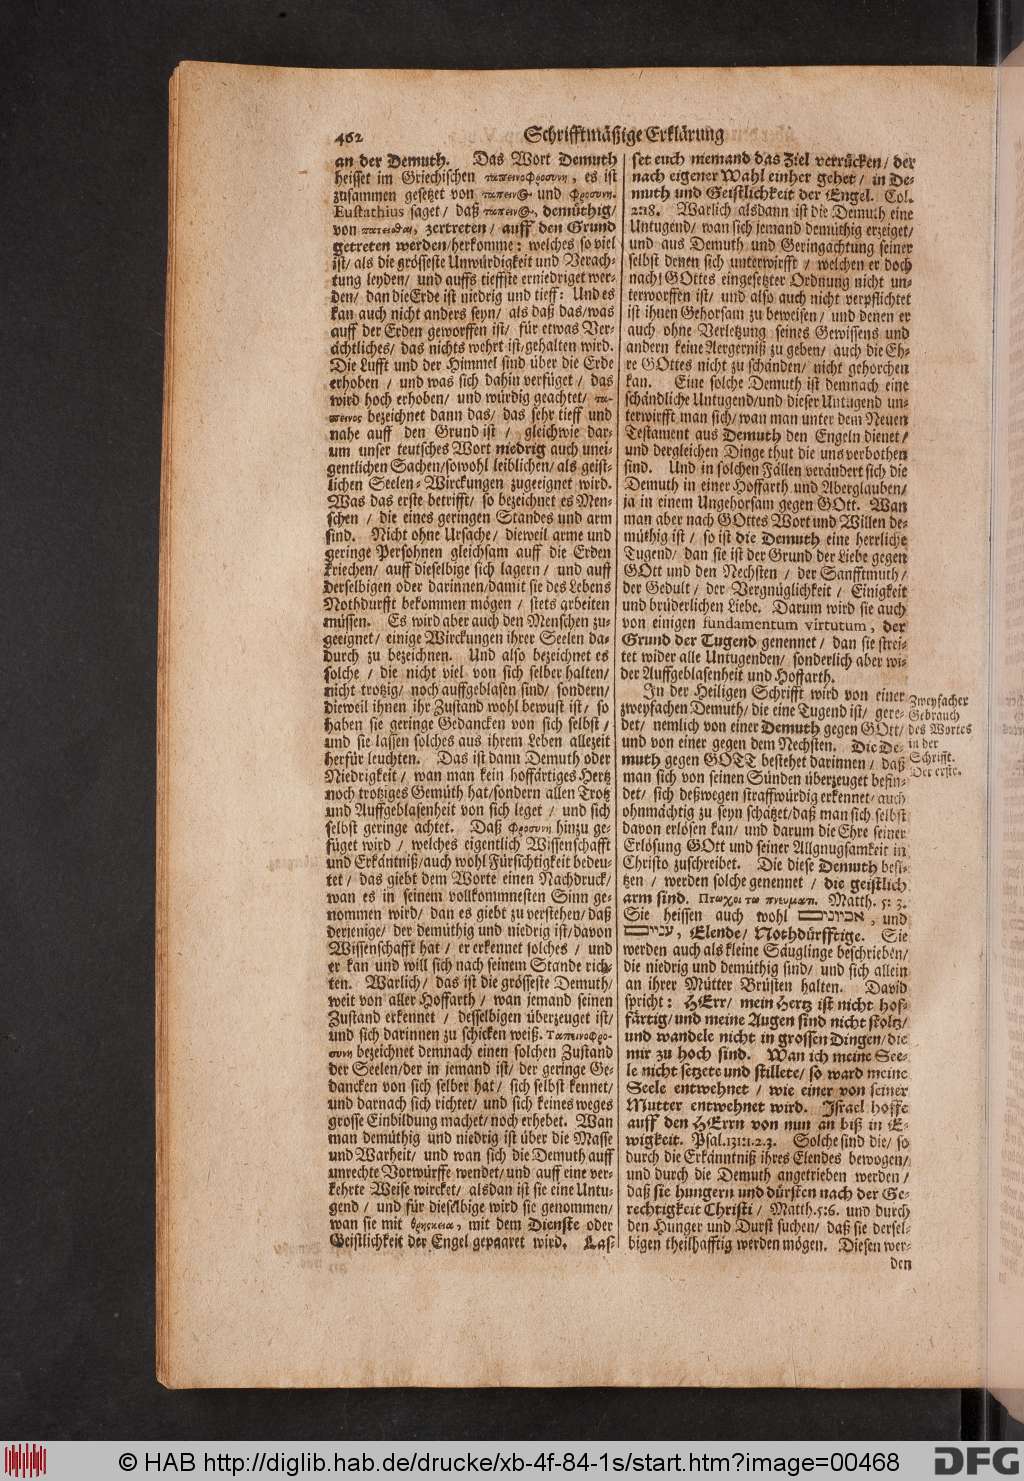 462
Schrifftmäßige Erklärung
an der Demuth. Das Wort Demuth
heisset im Griechischen ταπεινοφροσυνη, es ist
zusammen gesetzet von ταπεινος und φροσυνη.
Eustathius saget/ daß ταπεινος, demüthig/
von πατειϑαι, zertreten/ auff den Grund
getreten werden/herkomme: welches so viel
ist/ als die grösseste Unwürdigkeit und Verach-
tung leyden/ und auffs tieffste erniedriget wer-
den/ dan die Erde ist niedrig und tieff: Und es
kan auch nicht anders seyn/ als daß das/was
auff der Erden geworffen ist/ für etwas Ver-
ächtliches/ das nichts wehrt ist/gehalten wird.
Die Lufft und der Himmel sind über die Erde
erhoben / und was sich dahin verfüget / das
wird hoch erhoben/ und würdig geachtet/ τα-
πεινος bezeichnet dann das/ das sehr tieff und
nahe auff den Grund ist / gleichwie dar-
um unser teutsches Wort niedrig auch unei-
gentlichen Sachen/sowohl leiblichen/ als geist-
lichen Seelen-Wirckungen zugeeignet wird.
Was das erste betrifft/ so bezeichnet es Men-
schen / die eines geringen Standes und arm
sind. Nicht ohne Ursache/ dieweil arme und
geringe Persohnen gleichsam auff die Erden
kriechen/ auff dieselbige sich lagern/ und auff
derselbigen oder darinnen/damit sie des Lebens
Nothdurfft bekommen mögen / stets arbeiten
müssen. Es wird aber auch den Menschen zu-
geeignet/ einige Wirckungen ihrer Seelen da-
durch zu bezeichnen. Und also bezeichnet es
solche / die nicht viel von sich selber halten/
nicht trotzig/ noch auffgeblasen sind/ sondern/
dieweil ihnen ihr Zustand wohl bewust ist/ so
haben sie geringe Gedancken von sich selbst/
und sie lassen solches aus ihrem Leben allezeit
herfür leuchten. Das ist dann Demuth oder
Niedrigkeit/ wan man kein hoffärtiges Hertz
noch trotziges Gemüth hat/sondern allen Trotz
und Auffgeblasenheit von sich leget / und sich
selbst geringe achtet. Daß φροσυνη hinzu ge-
füget wird / welches eigentlich Wissenschafft
und Erkäntniß/auch wohl Fürsichtigkeit bedeu-
tet / das giebt dem Worte einen Nachdruck/
wan es in seinem vollkommnesten Sinn ge-
nommen wird/ dan es giebt zu verstehen/daß
derjenige/ der demüthig und niedrig ist/davon
Wissenschafft hat / er erkennet solches / und
er kan und will sich nach seinem Stande rich-
ten. Warlich/ das ist die grösseste Demuth/
weit von aller Hoffarth / wan jemand seinen
Zustand erkennet / desselbigen überzeuget ist/
und sich darinnen zu schicken weiß. Ταπεινοφρο-
συνη bezeichnet demnach einen solchen Zustand
der Seelen/der in jemand ist/ der geringe Ge-
dancken von sich selber hat/ sich selbst kennet/
und darnach sich richtet/ und sich keines weges
grosse Einbildung machet/noch erhebet. Wan
man demüthig und niedrig ist über die Masse
und Warheit/ und wan sich die Demuth auff
unrechte Vorwürffe wendet/ und auff eine ver-
kehrte Weise wircket/ alsdan ist sie eine Untu-
gend / und für dieselbige wird sie genommen/
wan sie mit θρησκεια, mit dem Dienste oder
Geistlichkeit der Engel gepaaret wird. Las-
set euch niemand das Ziel verrücken/ der
nach eigener Wahl einher gehet/ in De-
muth und Geistlichkeit der Engel. Col.
2:18. Warlich alsdann ist die Demuth eine
Untugend/ wan sich jemand demüthig erzeiget/
und aus Demuth und Geringachtung seiner
selbst denen sich unterwirfft / welchen er doch
nach GOttes eingesetzter Ordnung nicht un-
terworffen ist/ und also auch nicht verpflichtet
ist ihnen Gehorsam zu beweisen/ und denen er
auch ohne Verletzung seines Gewissens und
andern keine Aergerniß zu geben/ auch die Eh-
re GOttes nicht zu schänden/ nicht gehorchen
kan. Eine solche Demuth ist demnach eine
schändliche Untugend/und dieser Untugend un-
terwirfft man sich/ wan man unter dem Neuen
Testament aus Demuth den Engeln dienet/
und dergleichen Dinge thut die uns verbothen
sind. Und in solchen Fällen verändert sich die
Demuth in einer Hoffarth und Aberglauben/
ja in einem Ungehorsam gegen GOtt. Wan
man aber nach GOttes Wort und Willen de-
müthig ist / so ist die Demuth eine herrliche
Tugend/ dan sie ist der Grund der Liebe gegen
GOtt und den Nechsten / der Sanfftmuth/
der Gedult / der Vergnüglichkeit / Einigkeit
und brüderlichen Liebe. Darum wird sie auch
von einigen fundamentum virtutum, der
Grund der Tugend genennet / dan sie strei-
tet wider alle Untugenden/ sonderlich aber wi-
der Auffgeblasenheit und Hoffarth.
In der Heiligen Schrifft wird von einer
zweyfachen Demuth/ die eine Tugend ist/ gere-
det/ nemlich von einer Demuth gegen GOtt/
und von einer gegen dem Nechsten. Die De-
muth gegen GOTT bestehet darinnen/ daß
man sich von seinen Sünden überzeuget befin-
det/ sich deßwegen straffwürdig erkennet/ auch
ohnmächtig zu seyn schätzet/daß man sich selbst
davon erlösen kan/ und darum die Ehre seiner
Erlösung GOtt und seiner Allgnugsamkeit in
Christo zuschreibet. Die diese Demuth besi-
tzen / werden solche genennet / die geistlich
arm sind. Πτωχοι τω πνευματι. Matth. 5: 3.
Sie heissen auch wohl אביונים, und
עניים, Elende/ Nothdürfftige. Sie
werden auch als kleine Säuglinge beschrieben/
die niedrig und demüthig sind/ und sich allein
an ihrer Mütter Brüsten halten. David
spricht: HErr/ mein Hertz ist nicht hof-
färtig/ und meine Augen sind nicht stoltz/
und wandele nicht in grossen Dingen/ die
mir zu hoch sind. Wan ich meine See-
le nicht setzete und stillete/ so ward meine
Seele entwehnet / wie einer von seiner
Mutter entwehnet wird. Israel hoffe
auff den HErrn von nun an biß in E-
wigkeit. Psal.131:1.2.3. Solche sind die/ so
durch die Erkänntniß ihres Elendes bewogen/
und durch die Demuth angetrieben werden /
daß sie hungern und dürsten nach der Ge-
rechtigkeit Christi/ Matth.5:6. und durch
den Hunger und Durst suchen/ daß sie dersel-
bigen theilhafftig werden mögen. Diesen wer-
den
Zweyfacher
Gebrauch
des Wortes
in der
Schrifft.
Der erste.
© HAB http://diglib.hab.de/drucke/xb-4f-84-1s/start.htm?image=00468
DFG